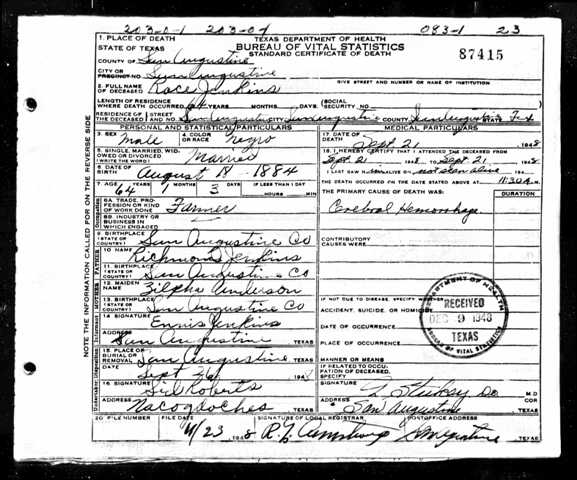 203-0-1 203-07 083-1 23
1. PLACE OF DEATH
STATE OF TEXAS
TEXAS DEPARTMENT OF HEALTH
BUREAU OF VITAL STATISTICS
STANDARD CERTIFICATE OF DEATH
87415
COUNTY OF San Augustine
CITY OR PRECINCT NO. San Augustine
GIVE STREET AND NUMBER OR NAME OF INSTITUTION
2. FULL NAME OF DECEASED Jenkins
LENGTH OF RESIDENCE WHERE DEATH OCCURRED 64 YEARS MONTHS DAYS
SOCIAL SECURITY NO.
RESIDENCE OF THE DECEASED STREET AND NO. San Augustine CITY San Augustine COUNTY San Augustine STATE Tex
PERSONAL AND STATISTICAL PARTICULARS
MEDICAL PARTICULARS
3. SEX Male
4. COLOR OR RACE Negro
17. DATE OF DEATH Sept 21 1948
5. SINGLE, MARRIED, WIDOWED OR DIVORCED (WRITE) Married
18. I HEREBY CERTIFY THAT I ATTENDED THE DECEASED FROM
Sept 21 1948 Sept 21 1948
6. DATE OF BIRTH August 18 1884
I LAST SAW HIM ALIVE ON not seen alive
THE DEATH OCCURRED ON THE DATE STATED ABOVE AT 11:30 A. M.
7. AGE 64 YEARS 1 MONTHS 3 DAYS IF LESS THAN 1 DAY HOURS MIN.
THE PRIMARY CAUSE OF DEATH WAS: DURATION
8A. TRADE, PROFESSION OR KIND OF WORK DONE Farmer
Cerebral Hemorrhage
8B. INDUSTRY OR BUSINESS IN WHICH ENGAGED
9. BIRTHPLACE (STATE OR COUNTRY) San Augustine Co
CONTRIBUTORY CAUSES WERE:
10. NAME Richmond Jenkins
11. BIRTHPLACE (STATE OR COUNTRY) San Augustine Co
12. MAIDEN NAME Zilpha Anderson
13. BIRTHPLACE (STATE OR COUNTRY) San Augustine Co
IF NOT DUE TO DISEASE, SPECIFY WHETHER:
ACCIDENT, SUICIDE, OR HOMICIDE
14. SIGNATURE Ennis Jenkins
DATE OF OCCURRENCE
ADDRESS San Augustine TEXAS
PLACE OF OCCURRENCE
15. PLACE OF BURIAL OR REMOVAL San Augustine TEXAS
MANNER OR MEANS
Sept 26 1948
IF RELATED TO OCCUPATION OF DECEASED, SPECIFY
16. SIGNATURE Sid Roberts
SIGNATURE Stukey Do M.D.
ADDRESS Nacogdoches TEXAS
ADDRESS San Augustine TEXAS
20. FILE NUMBER FILE DATE SIGNATURE OF LOCAL REGISTRAR POSTOFFICE ADDRESS
11/23 1948
DEPARTMENT OF HEALTH
RECEIVED
DEC 9 1948
TEXAS
BUREAU OF VITAL STATISTICS
NOTE THE INFORMATION CALLED FOR ON THE REVERSE SIDE
FATHER
MOTHER